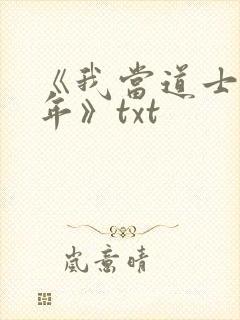 《我當道士
年》txt
嵐意晴